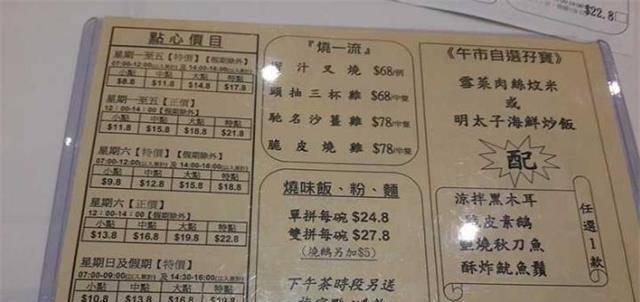 $22.8
點心價目
星期一至五【特價】【假期除外】
07:00-12:00(以入座計) 及 14:00-16:00(以入座計)
小點 中點 大點 特點
$8.8 $11.8 $14.8 $17.8
星期一至五【正價】
12:00-14:00【假期除外】
小點 中點 大點 特點
$11.8 $15.8 $18.8 $21.8
星期六【特價】【假期除外】
07:00-12:00(以入座計) 及 14:00-16:00(以入座計)
小點 中點 大點 特點
$9.8 $12.8 $15.8 $18.8
星期六【正價】
12:00-14:00【假期除外】
小點 中點 大點 特點
$13.8 $16.8 $19.8 $22.8
星期日及假期【特價】
07:00-09:00(以入座計) 及 14:30-16:00(以入座計)
小點 中點 大點 特點
$10.8 $13.8 $16.8 $19.8
『燒一流』
汁叉燒 $68/例
頭抽三杯雞 $68/中隻
馳名沙薑雞 $78/中隻
脆皮燒雞 $78/中隻
燒味飯、粉、麵
單拼每碗 $24.8
雙拼每碗 $27.8
(燒鵝另加$5)
下午茶時段另送
《午市自選孖寶》
雪菜肉絲炆米
或
明太子海鮮炒飯
配
涼拌黑木耳
皮素鵝
燒秋刀魚
酥炸魷魚鬚
任選1款